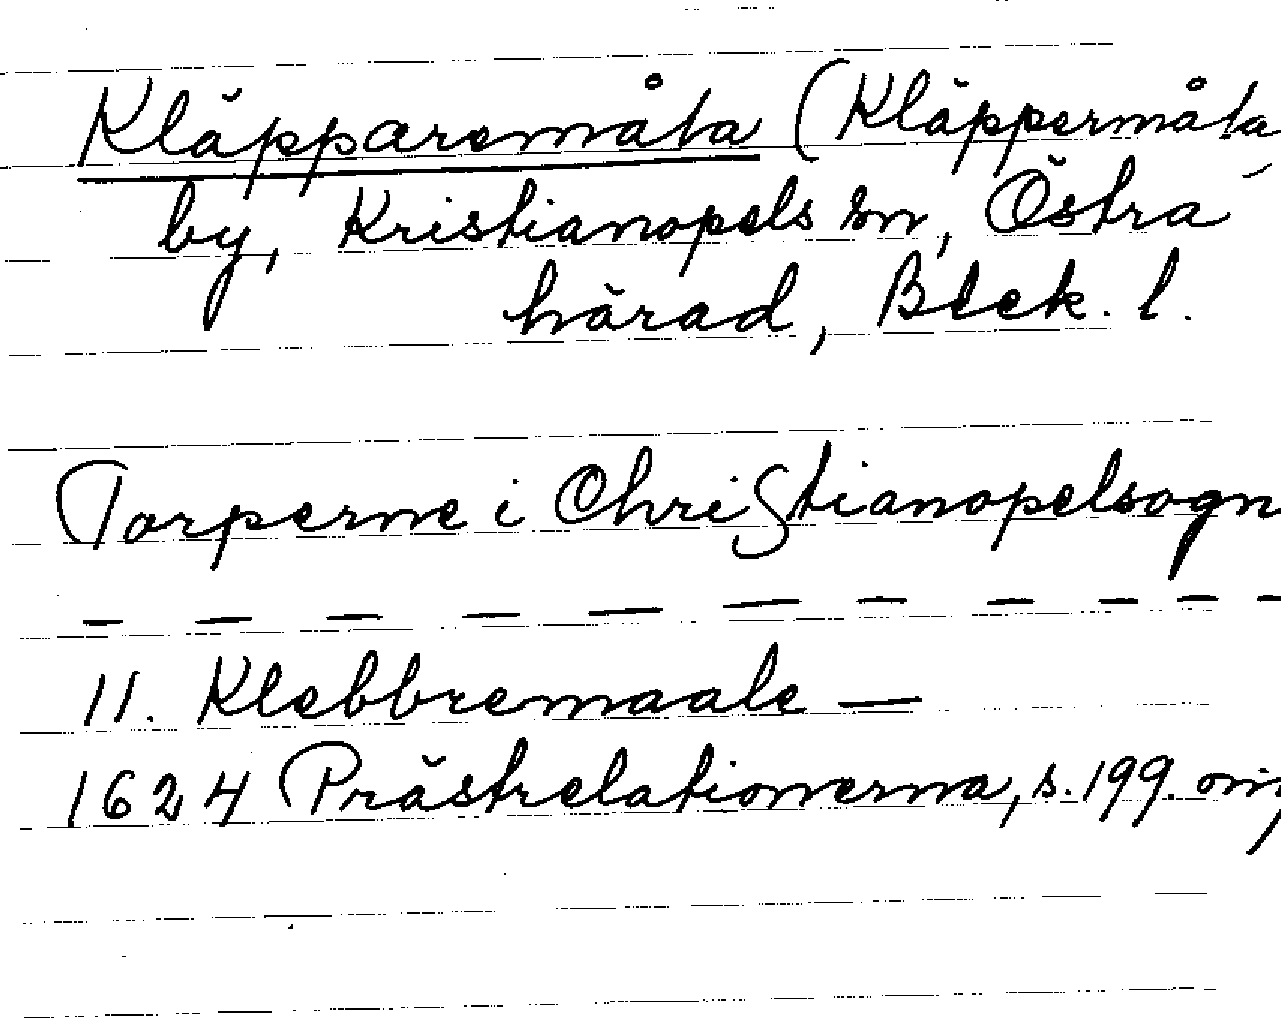 Kläpparemåla (Kläppermåla
by, Kristianopels sn, Östra
härad, Blek. l.
Torperne i Christianopelsogn
— — — — — — — — — — —
11. Klebbremaale —
1624 Prästrelationerna, s. 199.